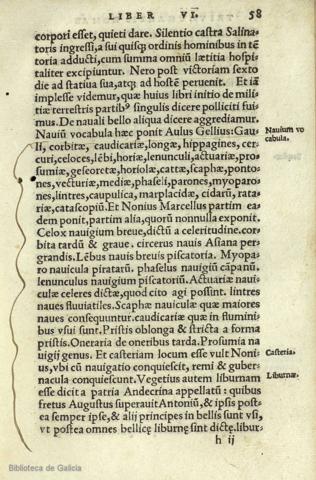 LIBER VI. 58
corpori esset, quieti dare. Silentio castra Salina-
toris ingressi, a sui quisq; ordinis hominibus in tē
toria adducti, cum summa omniū lætitia hospi-
taliter excipiuntur. Nero post victoriam sexto
die ad statiua sua, atq; ad hostē peruenit. Et iā
implesse videmur, quæ huius libri initio de mili-
tiæ terrestris partibꝰ singulis dicere polliciti fui-
mus. De nauali bello aliqua dicere aggrediamur.
Nauiū vocabula hæc ponit Aulus Gellius: Gau-
Nauium vo
cabula.
li, corbitæ, caudicariæ, longæ, hippagines, cer-
curi, celoces, lēbi, horiæ, lenunculi, actuariæ, pro
sumiæ, geseoretæ, horiolæ, cattæ, scaphæ, ponto-
nes, vecturiæ, mediæ, phaseli, parones, myoparo-
nes, lintres, caupulica, marplacidæ, cidarū, rata-
riæ, catascopiū. Et Nonius Marcellus partim ea-
dem ponit, partim alia, quorū nonnulla exponit.
Celox nauigium breue, dictū a celeritudine. cor
bita tardū & graue. circerus nauis Asiana per-
grandis. Lēbus nauis breuis piscatoria. Myapa-
ro nauicula piratarū. phaselus nauigiū cāpanū.
lenunculus nauigium piscatoriū. Actuariæ naui-
culæ celeres dictæ, quod cito agi possint. lintres
naues fluuiatiles. Scaphæ nauiculæ quæ maiores
naues consequuntur. caudicariæ quæ in flumini-
bus vsui sunt. Pristis oblonga & stricta a forma
pristis. Oneraria de oneribus tarda. Prosumia na
uigij genus. Et casteriam locum esse vult Noni-
Casteria.
us, vbi cū nauigatio conquiescit, remi & guber-
nacula conquiescunt. Vegetius autem liburnam
Liburnæ.
esse dicit a patria Andecrina appellatū: quibus
fretus Augustus superauit Antoniū, & ipsis post-
ea semper ipse, & alij principes in bellis sunt vsi,
vt postea omnes bellicę liburnę sint dictę. libur-
h ij
Biblioteca de Galicia